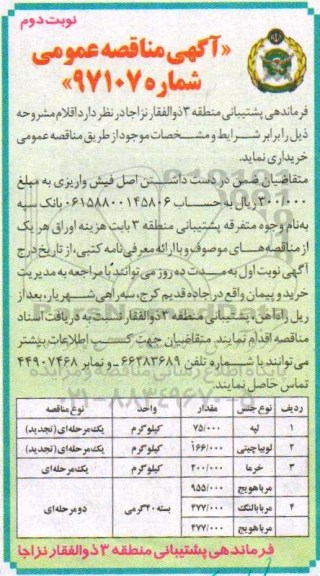 نوبت دوم
«آگهی مناقصه عمومی
شماره ۹۷۱۰۷»
فرماندهی پشتیبانی منطقه ۳ ذوالفقار نزاجا در نظر دارد اقلام مشروحه
ذیل را برابر شرایط و مشخصات موجود از طریق مناقصه عمومی
خریداری نماید.
متقاضیان ضمن در دست داشتن اصل فیش واریزی به مبلغ
۳۰۰/۰۰۰ ریال به حساب ۰۶۱۵۸۸۰۰۱۴۵۸۰۶ بانک سپه
به نام وجوه متفرقه پشتیبانی منطقه ۳ بابت هزینه اوراق هر یک
از مناقصه‌های موصوف و با ارائه معرفی نامه کتبی، از تاریخ درج
آگهی نوبت اول به مدت ده روز می توانند با مراجعه به مدیریت
خرید و پیمان واقع در جاده قدیم کرج، سه راهی شهریار، بعد از
ریل راه آهن، پشتیبانی منطقه ۳ ذوالفقار نسبت به دریافت اسناد
مناقصه اقدام نمایند. متقاضیان جهت کسب اطلاعات بیشتر
می توانند با شماره تلفن ۶۶۲۸۳۶۸۹ و نمابر ۴۴۹۰۷۴۶۸
تماس حاصل نمایند.
پایگاه اطلاع رسانی مناقصه و مزایده
۰۲۱-۸۸۳۴۹۶۷۰-۵
ردیف نوع جنس مقدار واحد نوع مناقصه
۱ لپه ۷۵/۰۰۰ کیلوگرم یک مرحله‌ای (تجدید)
۲ لوبیا چیتی ۱۶۶/۰۰۰ کیلوگرم یک مرحله‌ای (تجدید)
۳ خرما ۲۰۰/۰۰۰ کیلوگرم یک مرحله‌ای
مربا هویج ۹۵۵/۰۰۰
۴ مربا بالنگ ۲۷۷/۰۰۰ بسته ۲۰ گرمی دو مرحله‌ای
مربا هویج ۴۷۷/۰۰۰
فرماندهی پشتیبانی منطقه ۳ ذوالفقار نزاجا